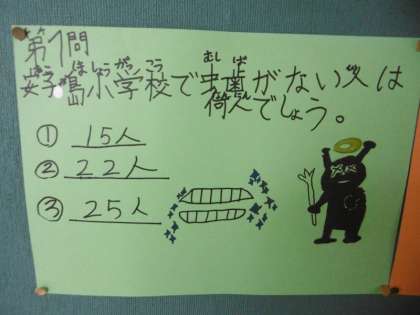 第1問
安子島小学校で虫歯がない人は
何人でしょう。
① 15人
② 22人
③ 25人